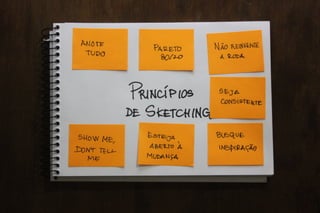 ANOTE
TUDO
PARETO
80/20
NÃO REINVENTE
A RODA
PRINCÍPIOS
DE SKETCHING
SEJA
CONSISTENTE
SHOW ME,
DON'T TELL
ME
ESTEJA
ABERTO À
MUDANÇA
BUSQUE
INSPIRAÇÃO